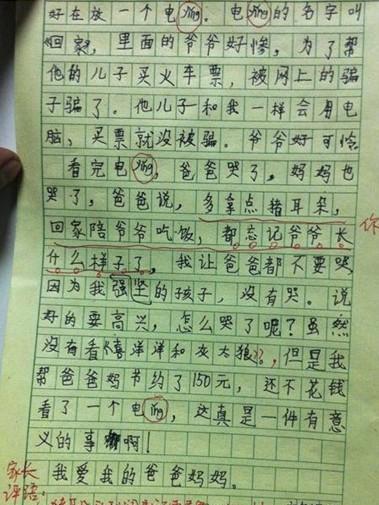 好在放一个电ying。电ying的名字叫
《回家》，里面的爷爷好惨。为了帮
他的儿子买火车票，被网上的骗
子骗了。他儿子和我一样会用电
脑，买票就没被骗。爷爷好可怜
看完电ying，爸爸哭了，妈妈也
哭了，爸爸说，多拿点猪耳朵，
回家陪爷爷吃饭，都忘记爷爷长
什么样子了，我让爸爸都不要哭
因为我强坚的孩子，没有哭。说
好的要高兴，怎么哭了呢？虽然
没有看《喜洋洋和灰大狼》，但是我
帮爸爸妈节约了150元，还不花钱
看了一个电ying，这真是一件有意
义的事啊！
我爱我的爸爸妈妈。
你
家长
评语：